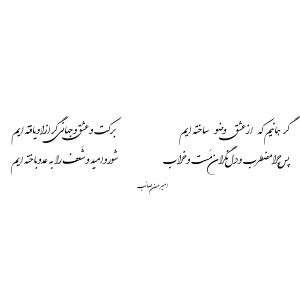 گر جهانیم که از عشق وضو ساخته ایم برکت و عشق و جهانگی گر از او یافته ایم
پس چرا مضطرب و دل نگران مست و خراب شور و امید و شعف را به عدو باخته ایم
امیرحسن صائب